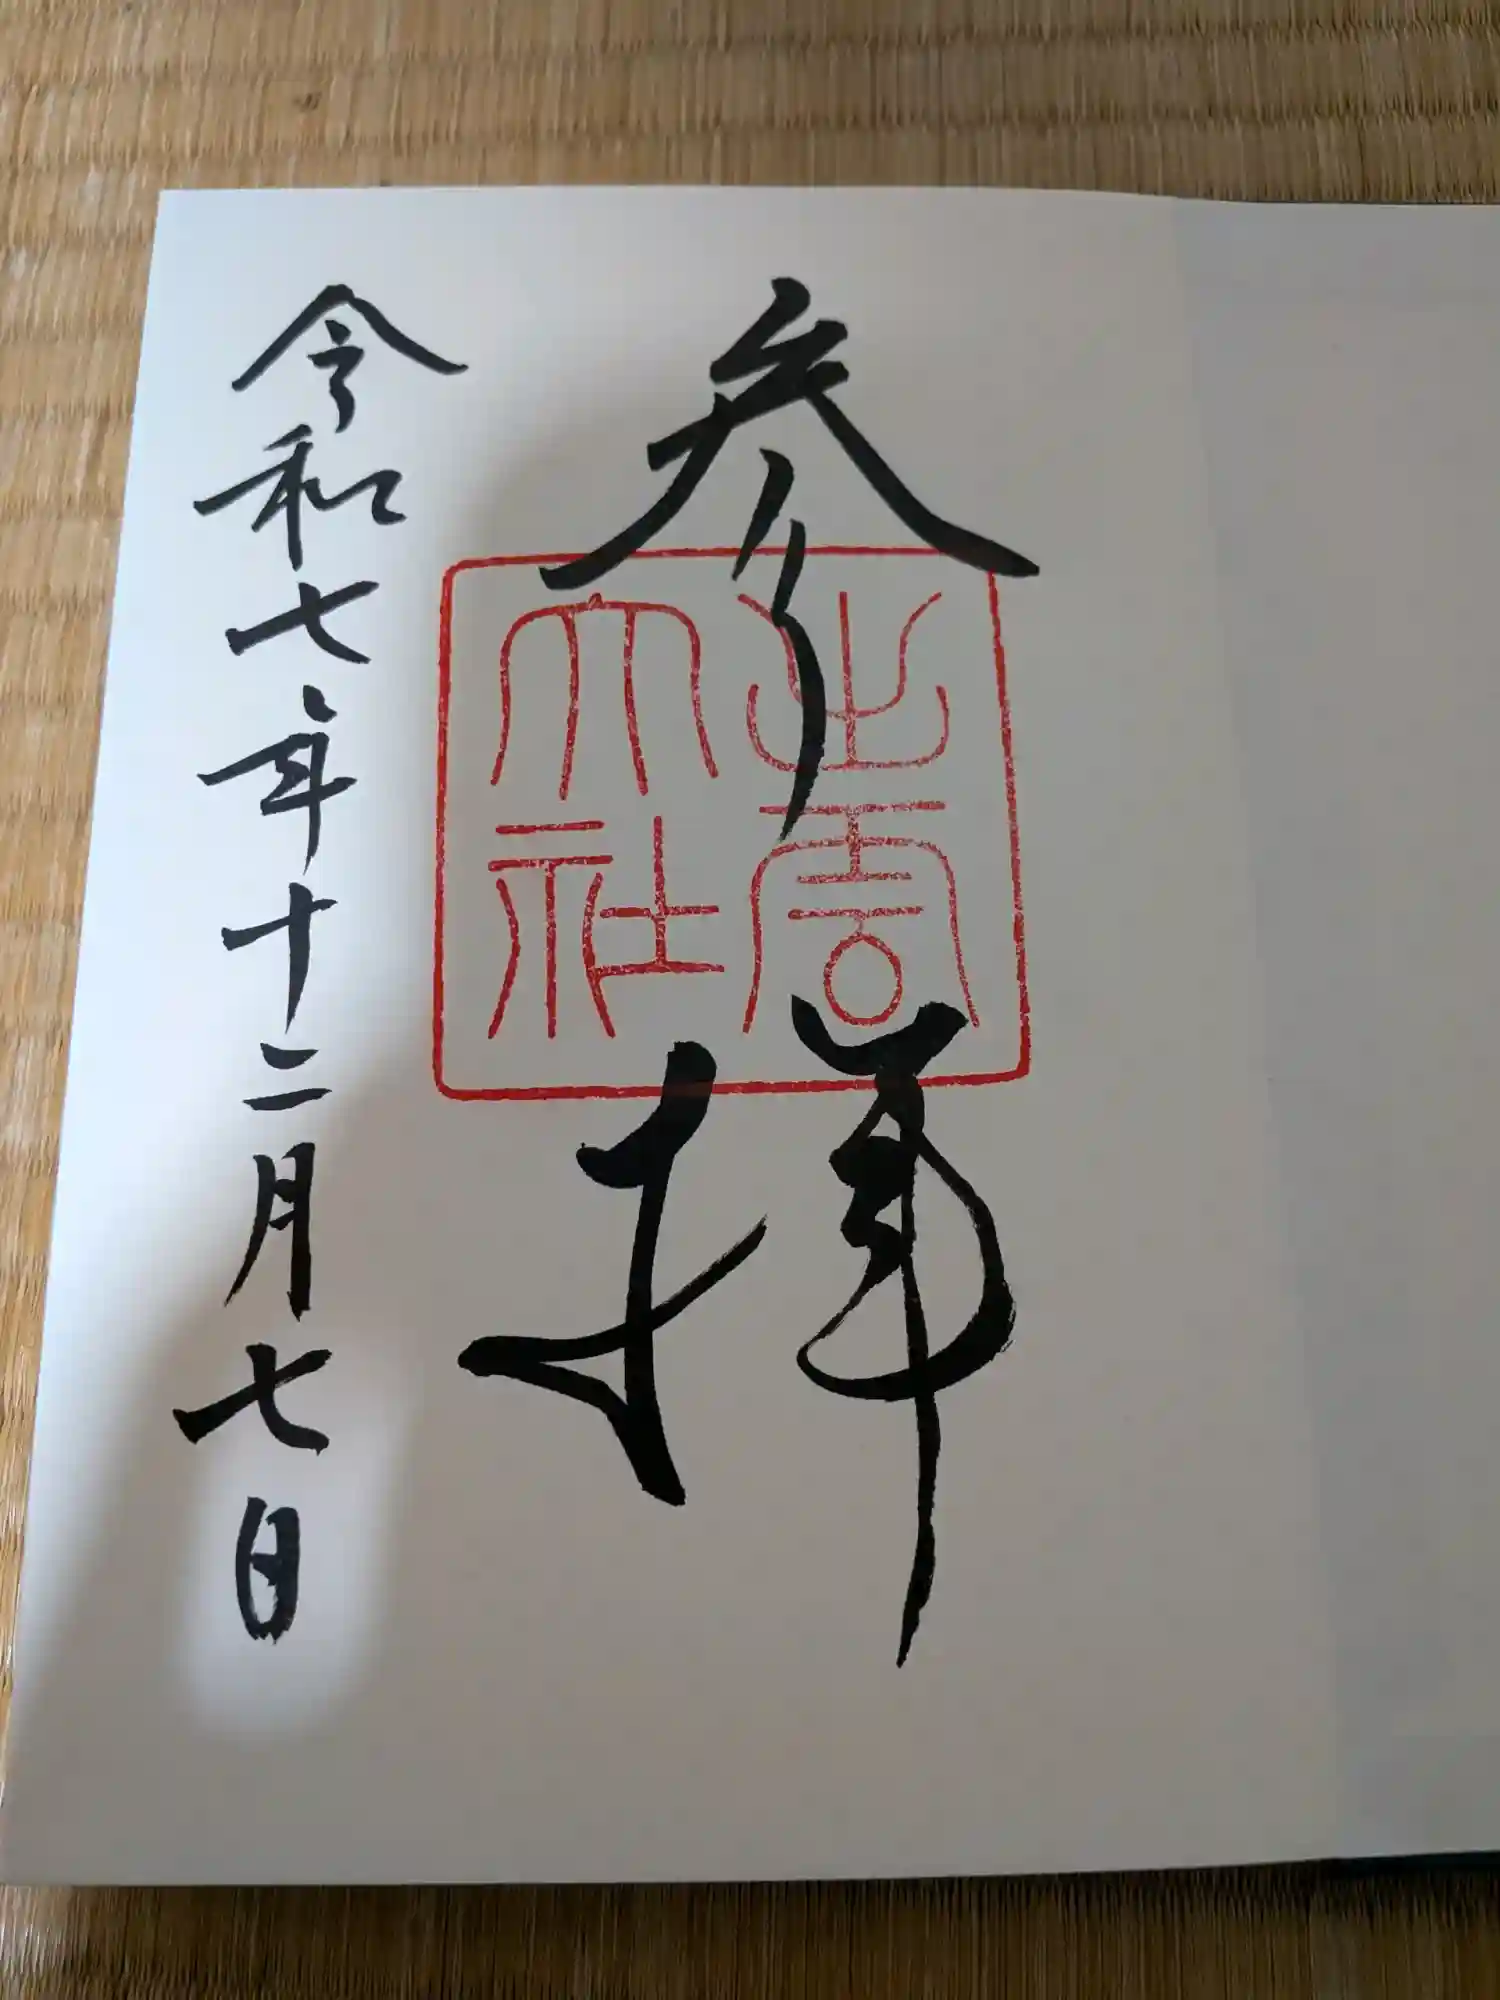 参拝
出雲大社
令和七年十二月七日